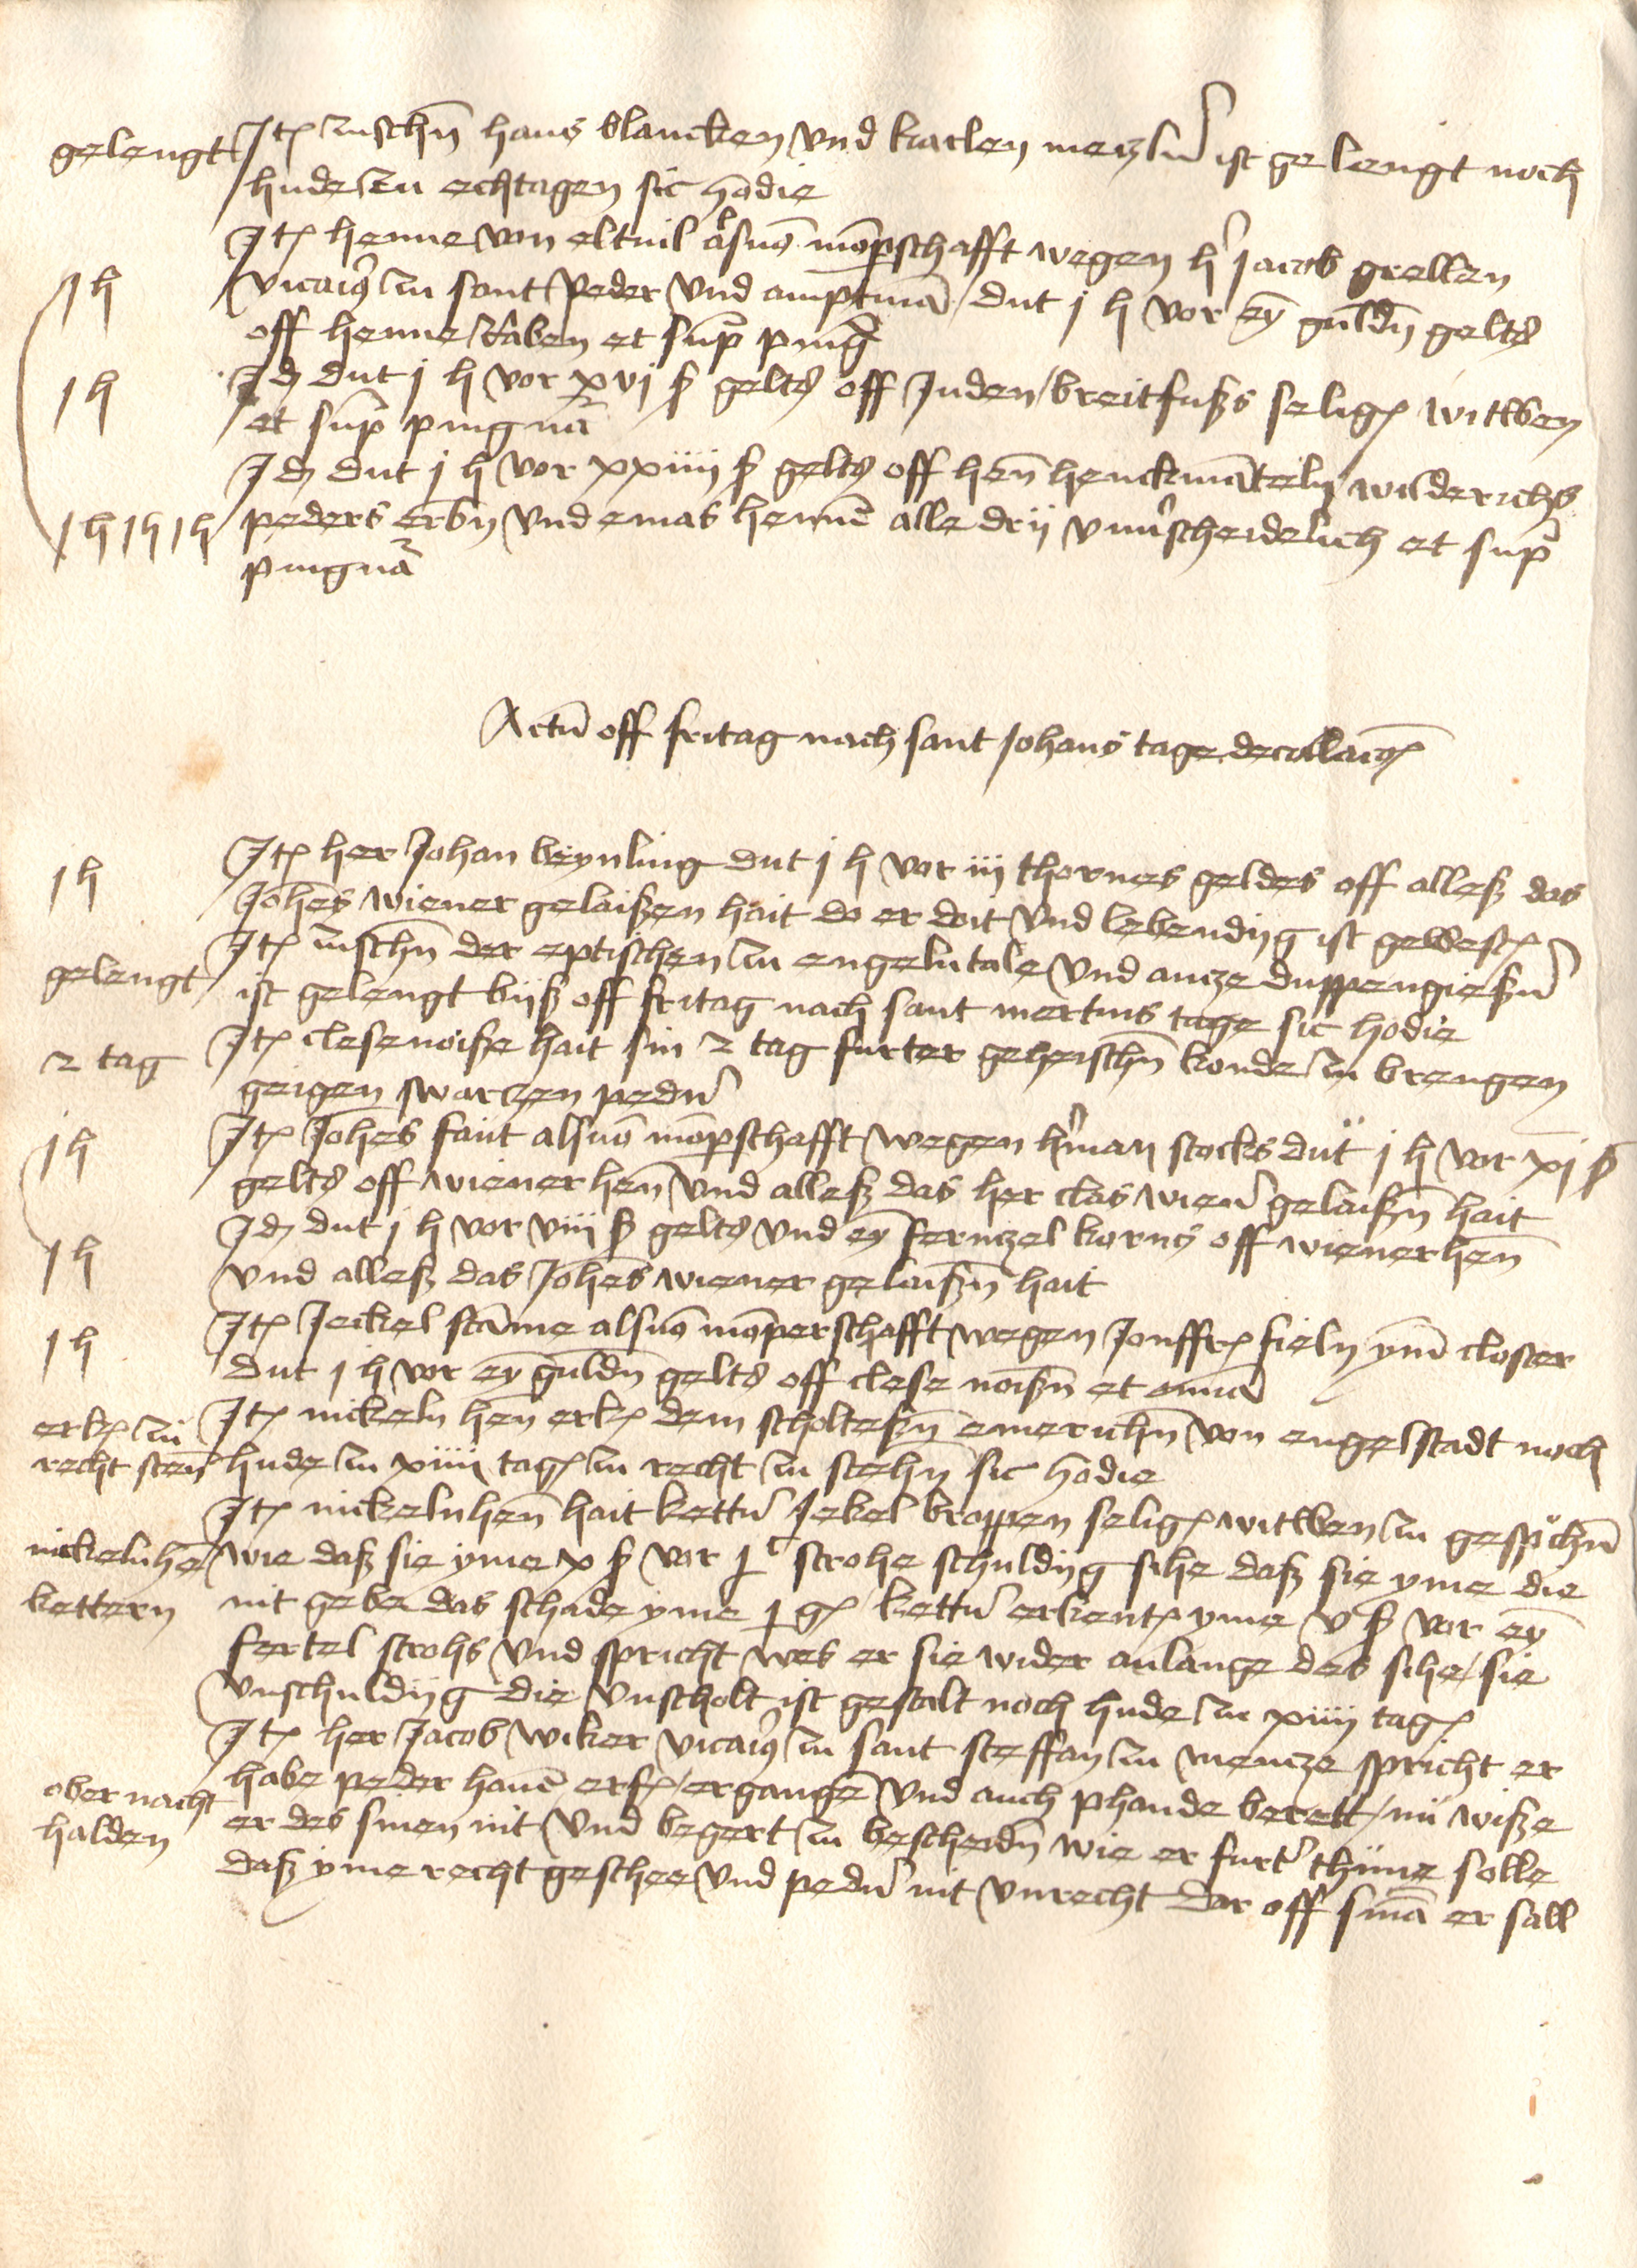 gelengt Jt(em) zusch(e)n hans blancken vnd karlen meczl(er) ist gelengt noch
hude zu echtagen sic hodie
Jt(em) henne von eltuil als mo(m)p(er)schafft wegen h(er) jacob grellen
j h vicari(us) zu sant peder vnd amptma(n) dut j h vor ey(n) guld(e)n gelts
off henne raben et sup(ra) pi(n)g(nora)
j h Jd(em) dut j h vor xvj ß gelts off Juden breitfußs selig(en) witwen
et sup(ra) pingnora
Jd(em) dut j h vor xxiiii ß gelts off hen(n) henckma(n) wilderichs
j h j h j h peders erb(e)n vnd emas henne(n) alle drij vnu(er)scheidelich et sup(ra)
pingnora
Actu(m) off fritag nach sant Johans tage decollacio(n)is
j h Jt(em) her Johan beynling dut j h vor iij thornes geldes off alleß das
Joh(ann)es wiener gelaißen hait do er doit vnd lebendijg ist gewest
gelengt Jt(em) zusch(e)n der eptischen zu engelntale vnd ancze duppengießer(n)
ist gelengt bijß off fritag nach sant mertins tage sic hodie
2 tag Jt(em) clese noiße hait sin 2 tag furter geheisch(e)n konde zu brengen
geigen swarczen peder(n)
j h Jt(em) Joh(ann)es faut als mo(m)p(er)schafft wegen h(er)man stocks dut j h vor xj ß
gelts off wiener hen(n) vnd alleß das her clas wien(er) gelaiß(e)n hait
j h Jd(em) dut j h vor viij ß gelts vnd ey(n) fernczel korns off wiener hen(n)
vnd alleß das Joh(ann)es wiener gelaiß(e)n hait
j h Jt(em) Jeckel sta(m)me als mo(m)perschafft wegen Jonffr(auwe) fieln ym(e) closter
dut j h vor ey(n) guld(e)n gelts off clese noiß(e)n et om(n)ia
erk(enn)t zu recht sten Jt(em) nickeln hen(n) erk(enn)t dem scholteß(e)n emerich(e)n von engelstadt noch
hude zu xiiii tag(en) zu recht zu steh(e)n sic hodie
nickeln he(n) kettern Jt(em) nickeln hen(n) hait kett(er)n Jekel broppen selig(en) witwen zu gesp(ro)ch(e)n
wie daß sie yme x ß vor j strohe schuldijg sihe daß sie yme die
nit gebe das schade yme j g(ulden) kett(er)n erkent yme v ß vor ey(n)
fertel strohs vnd spricht wes er sie wider anlange des sihe sie
vnschuldijg die vnscholt ist gestalt noch hude zu xiiii tag(en)
Jt(em) her Jacob wiker vicari(us) zu sant steffan zu mencze spricht er
ober nacht halden habe peder haue(n) erf(olgt) ergange(n) vnd auch phande berett nu wiße
er des sinen nit vnd begert zu bescheid(e)n wie er furt(er) thune solle
daß yme recht geschee vnd peder(n) nit vnrecht dar off s(ente)n(ti)a er sall